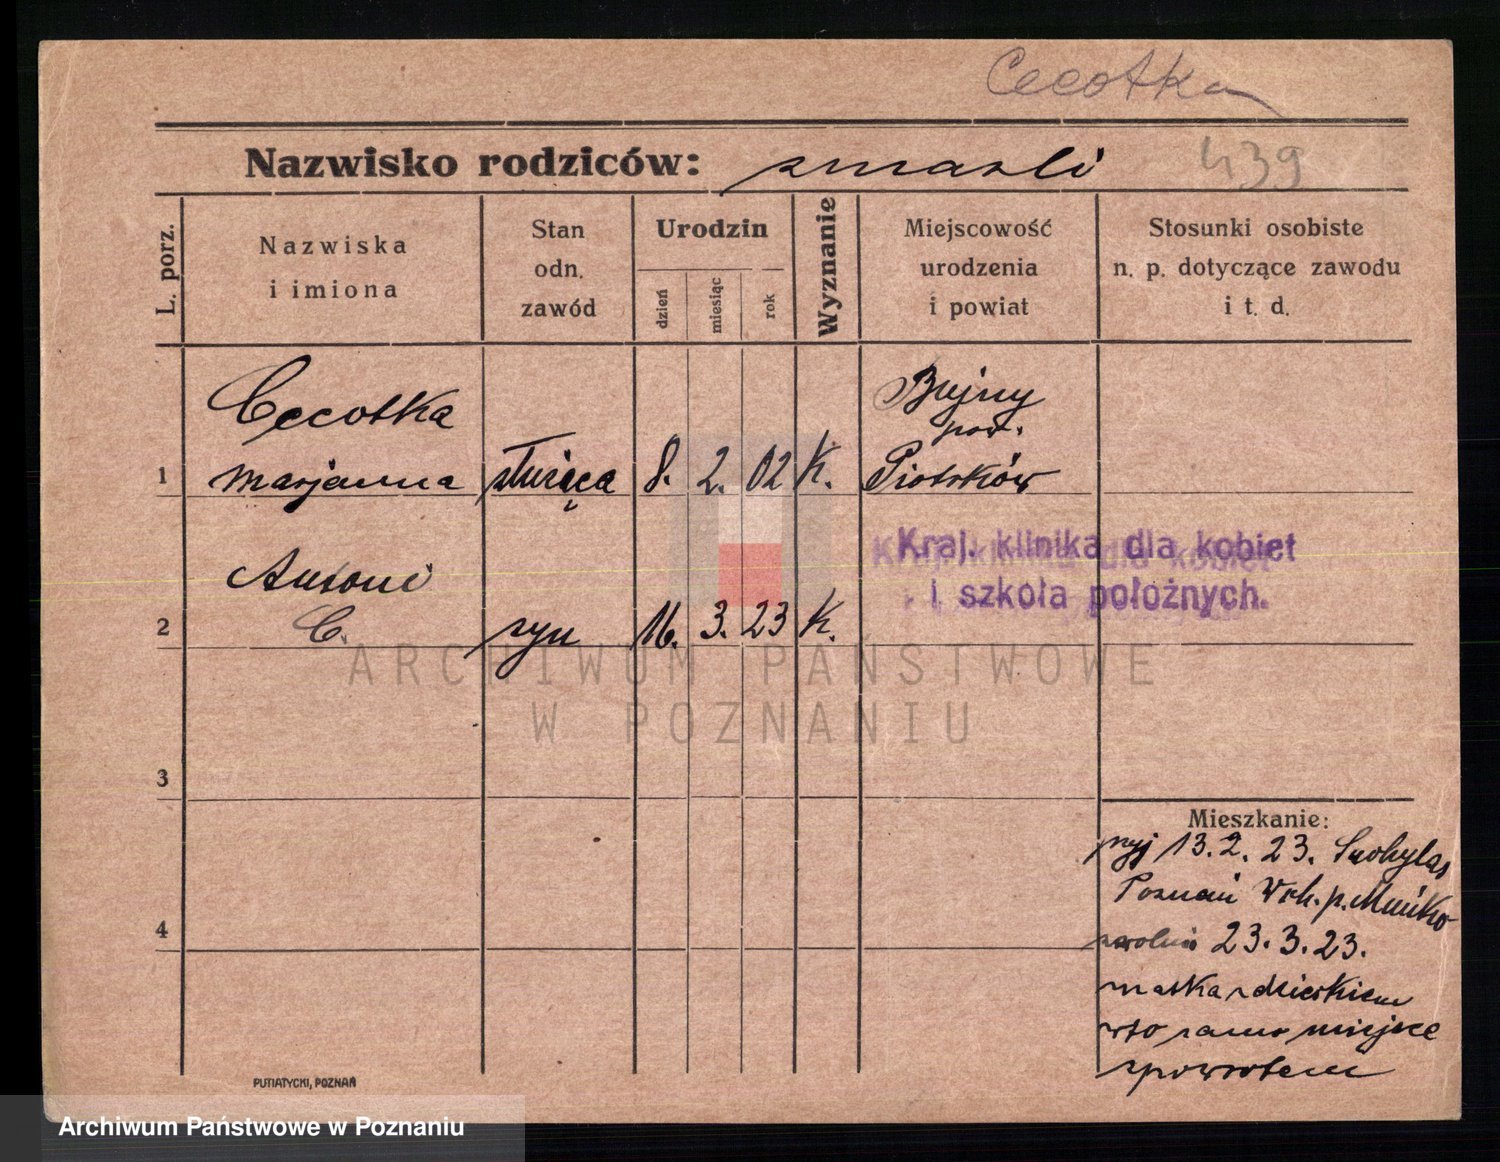 Cecotka
Nazwisko rodziców: zmarli 439
L. porz.
Nazwiska
i imiona
Stan
odn.
zawód
Urodzin
dzień
miesiąc
rok
Wyznanie
Miejscowość
urodzenia
i powiat
Stosunki osobiste
n. p. dotyczące zawodu
i t. d.
Cecotka Bujny
pow.
1 Marjanna służąca 8. 2. 02 K. Piotrków
Kraj. klinika dla kobiet
i szkoła położnych.
Antoni
2 C. syn 16. 3. 23 K.
ARCHIWUM PAŃSTWOWE
W POZNANIU
3
Mieszkanie:
13. 2. 23.
Poznań
4
23. 3. 23.
matka z dzieckiem
w to samo miejsce
zpowrotem
PUTIATYCKI, POZNAŃ
Archiwum Państwowe w Poznaniu